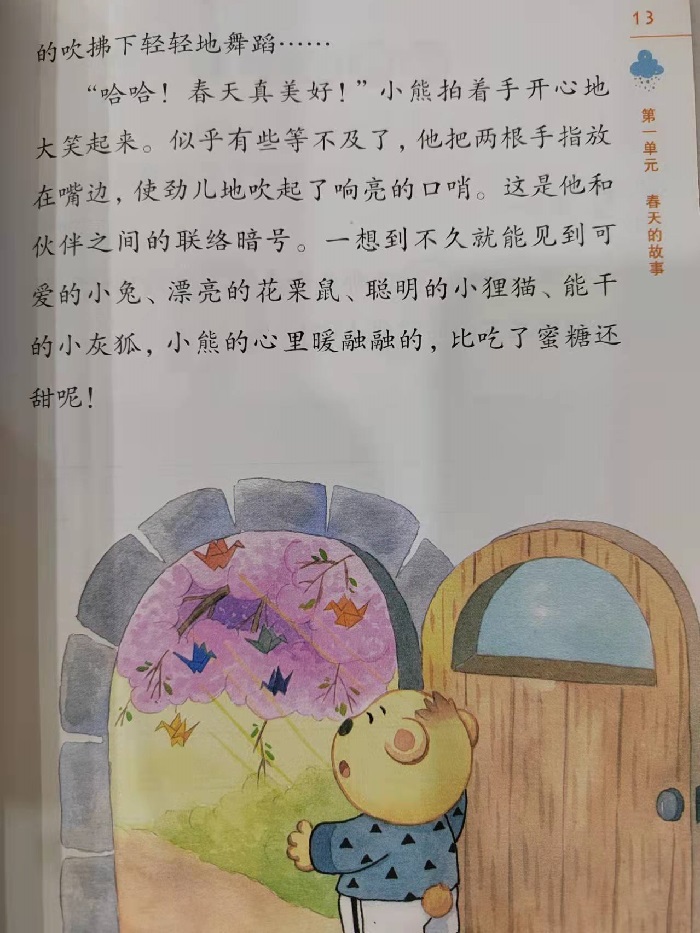 的吹拂下轻轻地舞蹈……
“哈哈！春天真美好！”小熊拍着手开心地
大笑起来。似乎有些等不及了，他把两根手指放
在嘴边，使劲儿地吹起了响亮的口哨。这是他和
伙伴之间的联络暗号。一想到不久就能见到可
爱的小兔、漂亮的花栗鼠、聪明的小狸猫、能干
的小灰狐，小熊的心里暖融融的，比吃了蜜糖还
甜呢！
13
第一单元 春天的故事